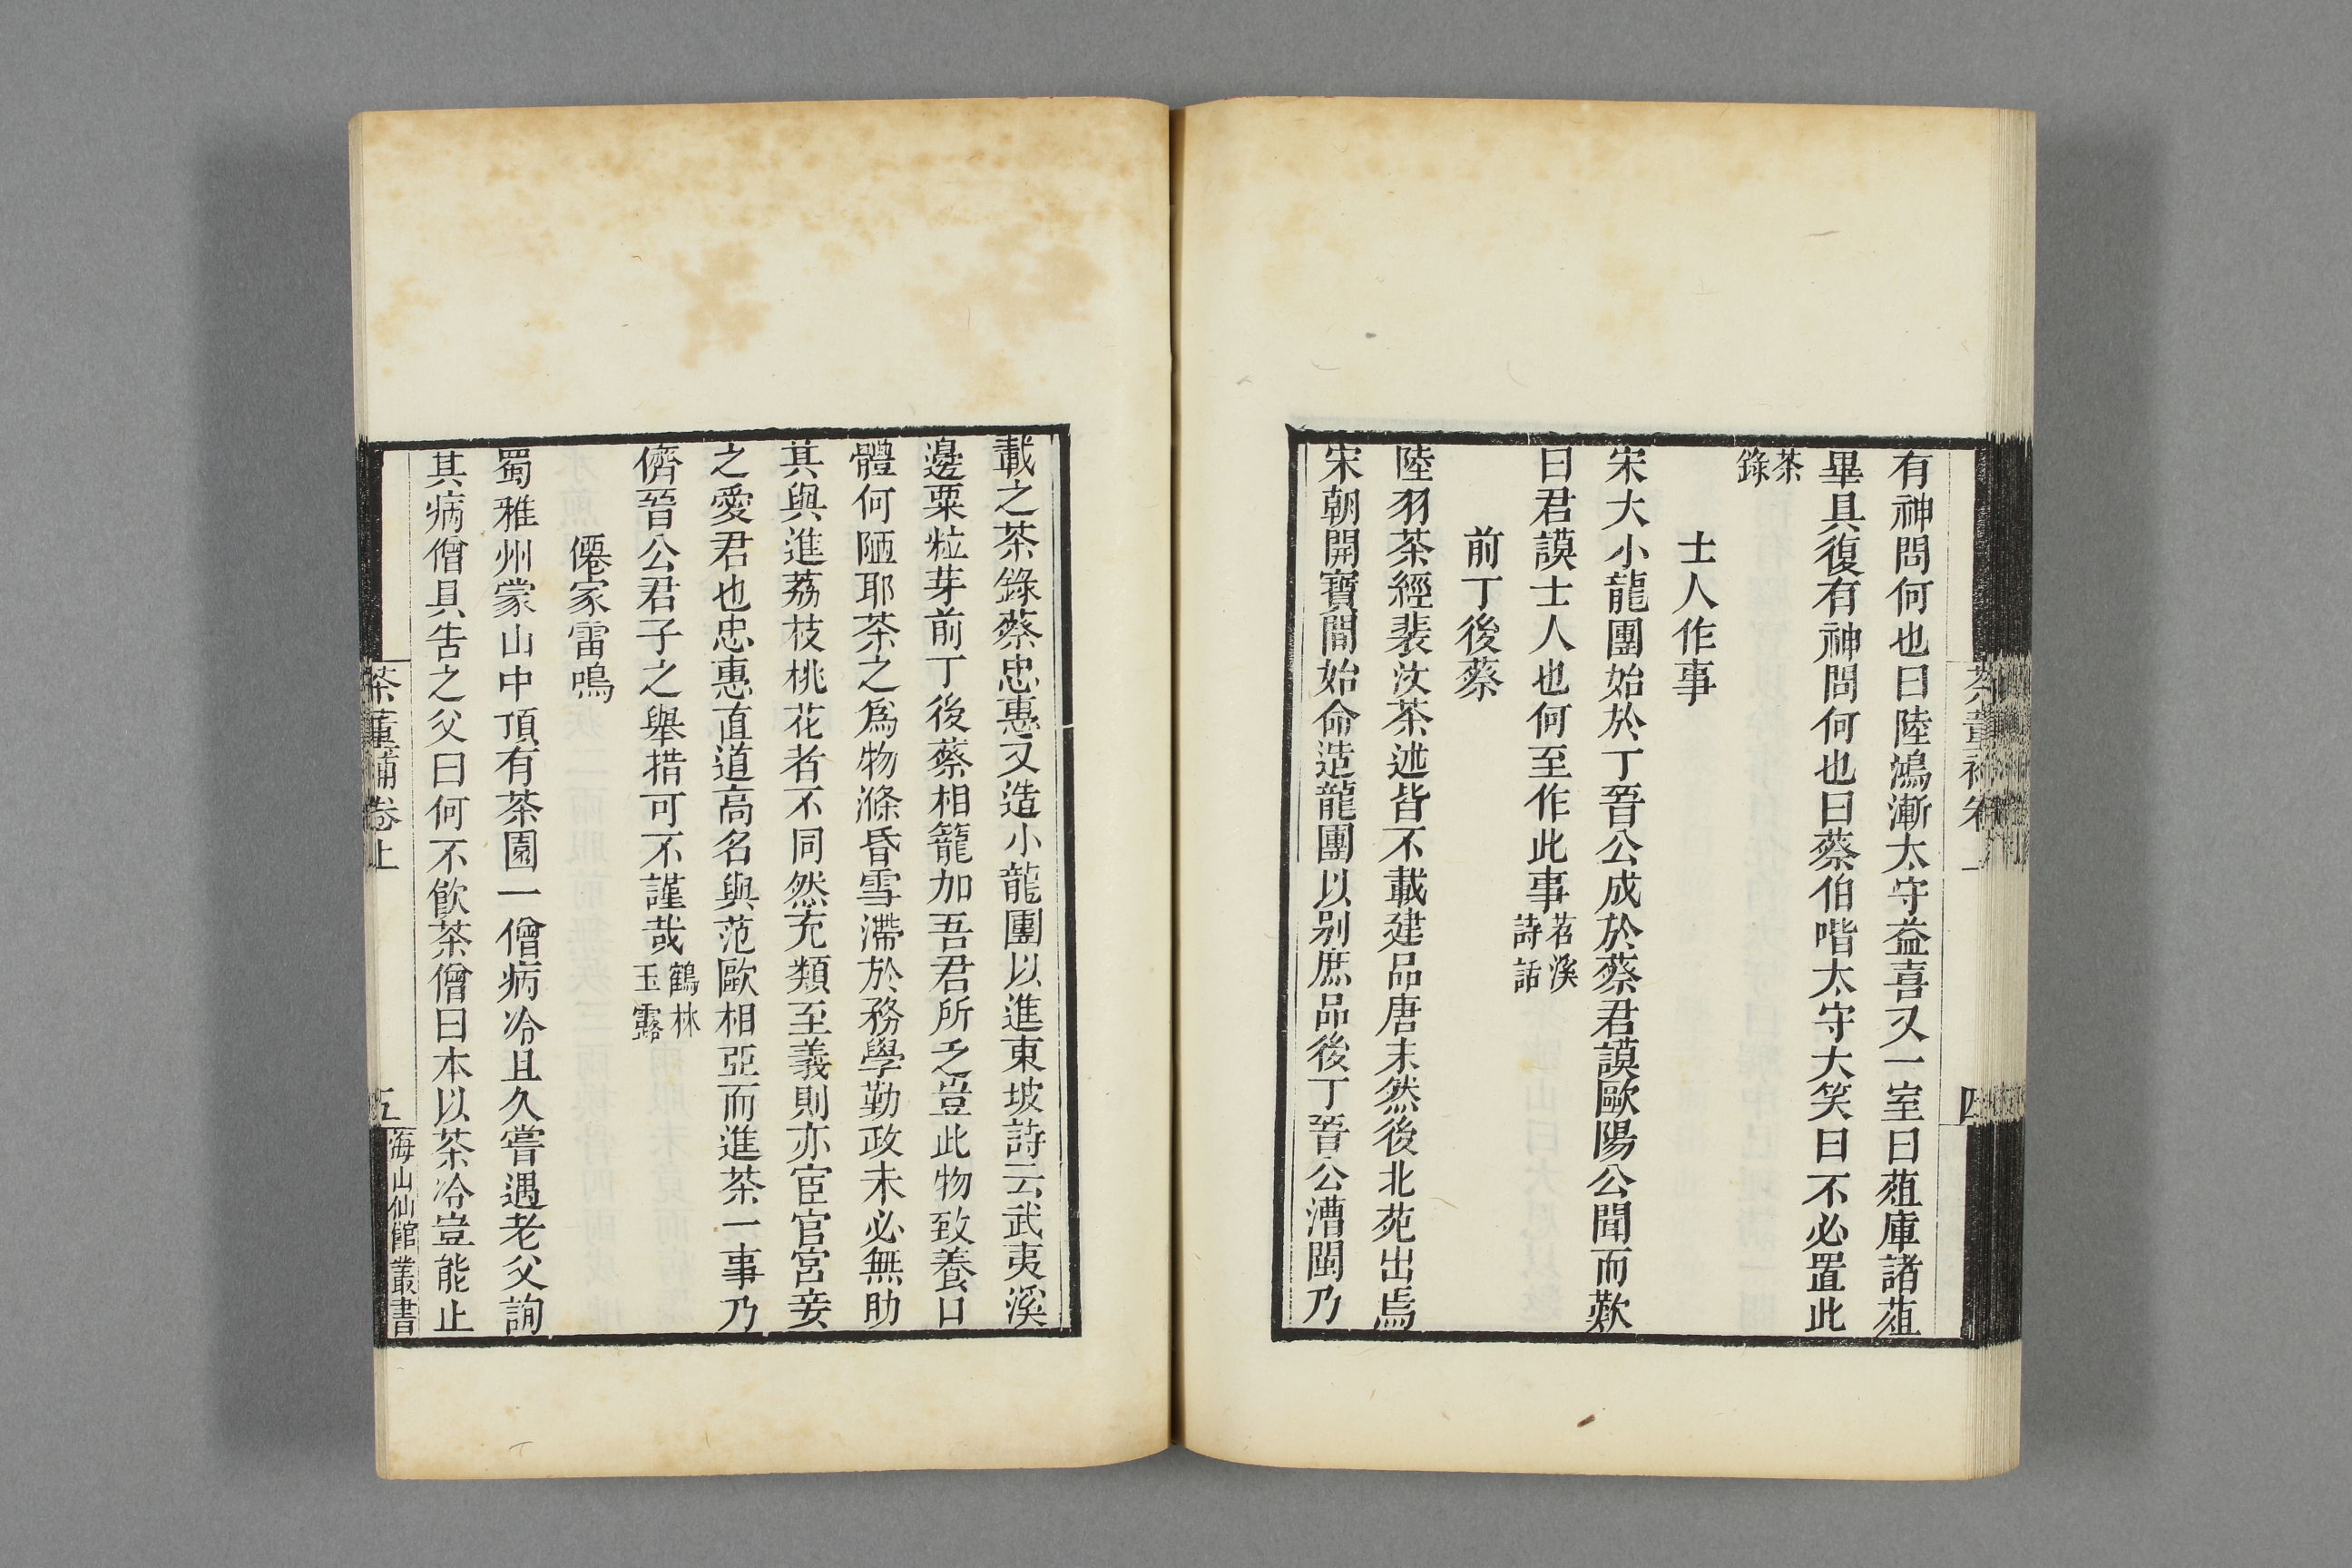 有神問何也曰陸鴻漸太守益喜又一室曰葅庫諸葅
畢具復有神問何也曰蔡伯喈太守大笑曰不必置此
茶
錄
士人作事
宋大小龍團始於丁晉公成於蔡君謨歐陽公聞而歎
曰君謨士人也何至作此事
苕溪
詩話
前丁後蔡
陸羽茶經裴汶茶述皆不載建品唐末然後北苑出焉
宋朝開寶間始命造龍團以别庶品後丁晉公漕閩乃
載之茶錄蔡忠惠又造小龍團以進東坡詩云武夷溪
邊粟粒芽前丁後蔡相籠加吾君所乏豈此物致養口
體何陋耶茶之爲物滌昏雪滯於務學勤政未必無助
其與進荔枝桃花者不同然充類至義則亦宦官宮妾
之愛君也忠惠直道高名與范歐相亞而進茶一事乃
儕晉公君子之舉措可不謹哉
鶴林
玉露
僊家雷鳴
蜀雅州蒙山中頂有茶園一僧病冷且久嘗遇老父詢
其病僧具告之父曰何不飲茶僧曰本以茶冷豈能止
茶董補卷上
五
海山仙館叢書